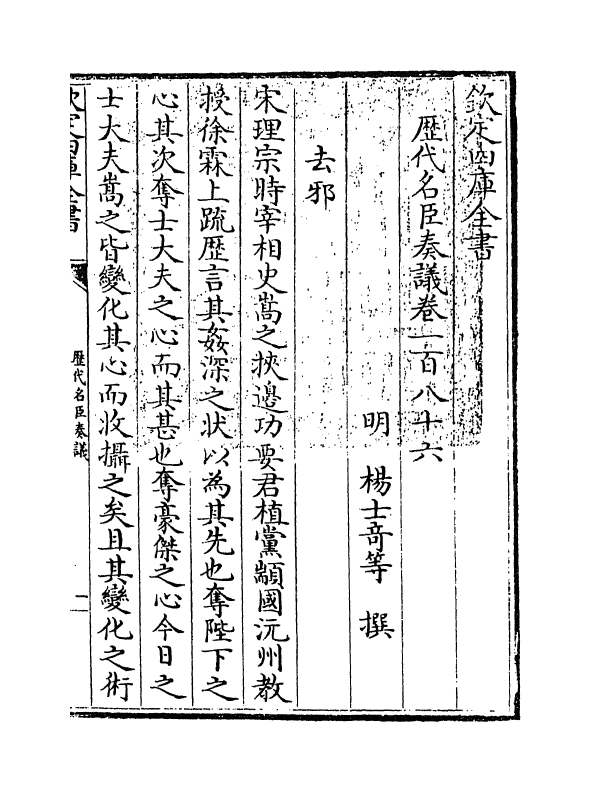 欽定四庫全書
歴代名臣奏議卷一百八十六
明 楊士竒等 撰
去邪
宋理宗時宰相史嵩之挾邉功要君植黨顓國沅州教
授徐霖上䟽歴言其姦深之狀以為其先也奪陛下之
心其次奪士大夫之心而其甚也奪豪傑之心今日之
士大夫嵩之皆變化其心而收攝之矣且其變化之術
欽定四庫全書
歴代名臣奏議
一